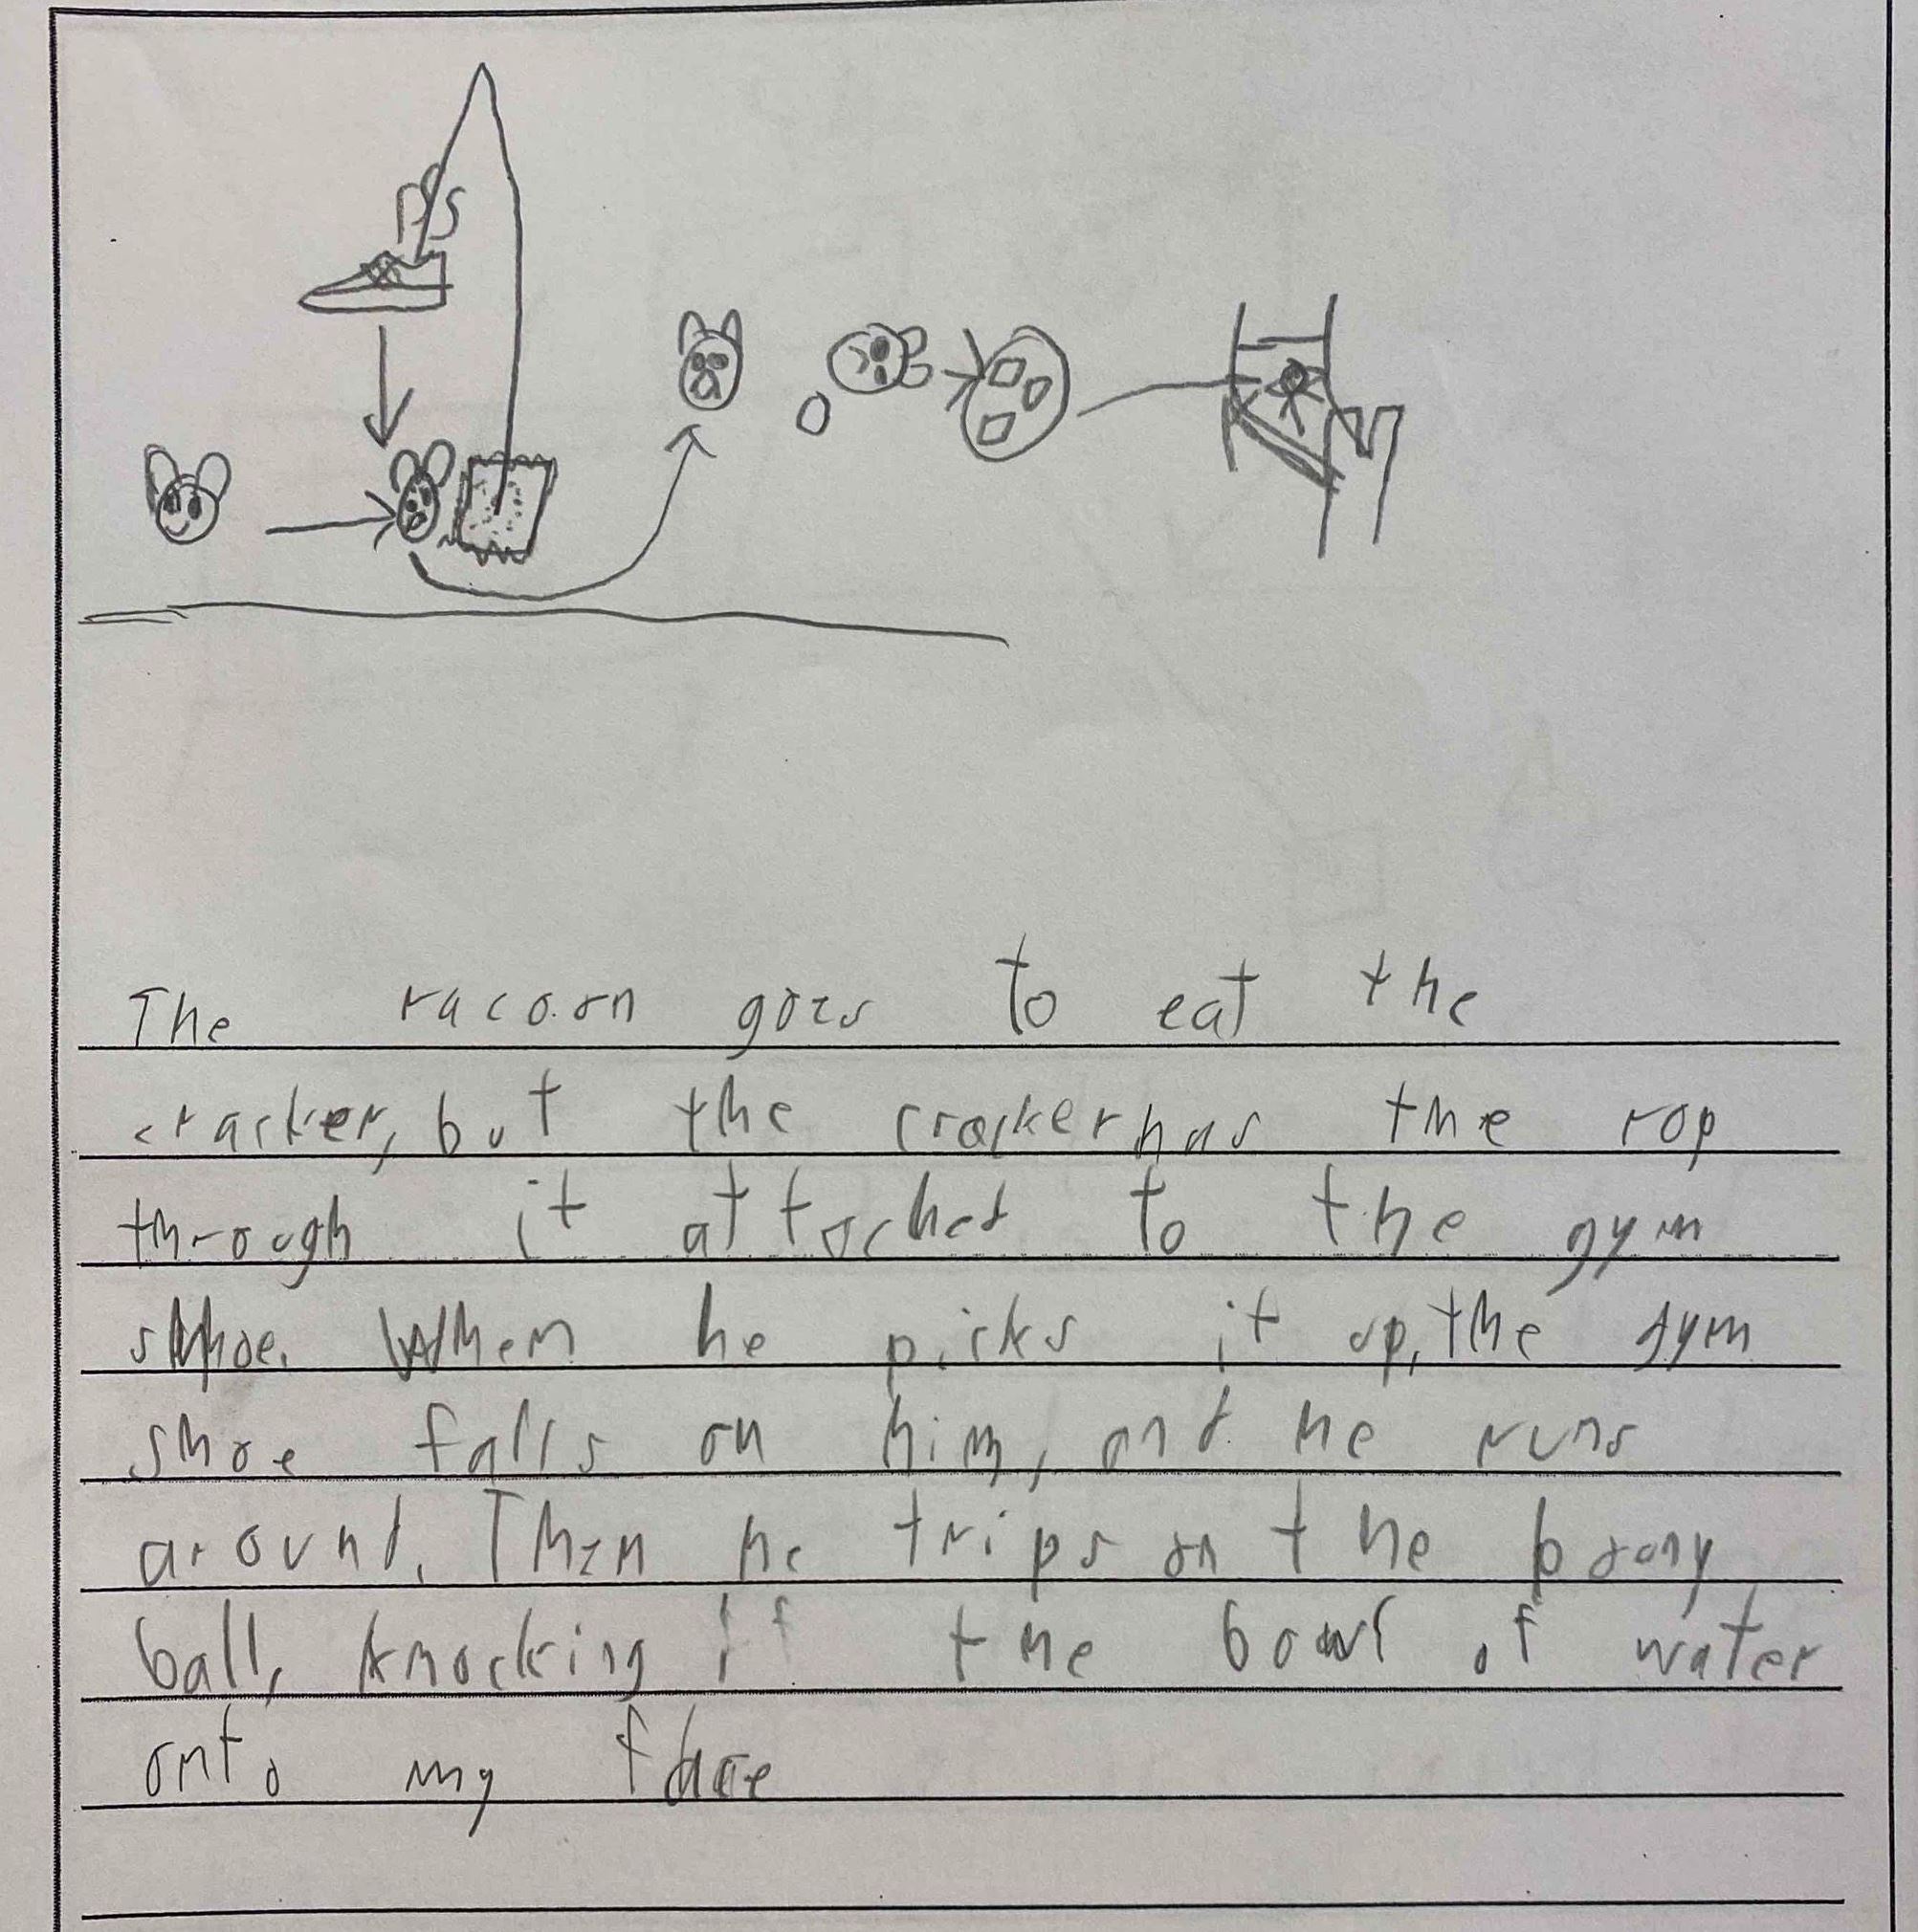 The racoon goes to eat the
cracker, but the cracker has the rop
through it attached to the gym
shoe. When he picks it up, the gym
shoe falls on him, and he runs
around. Then he trips on the
ball, knocking if the bowl of water
onto my face